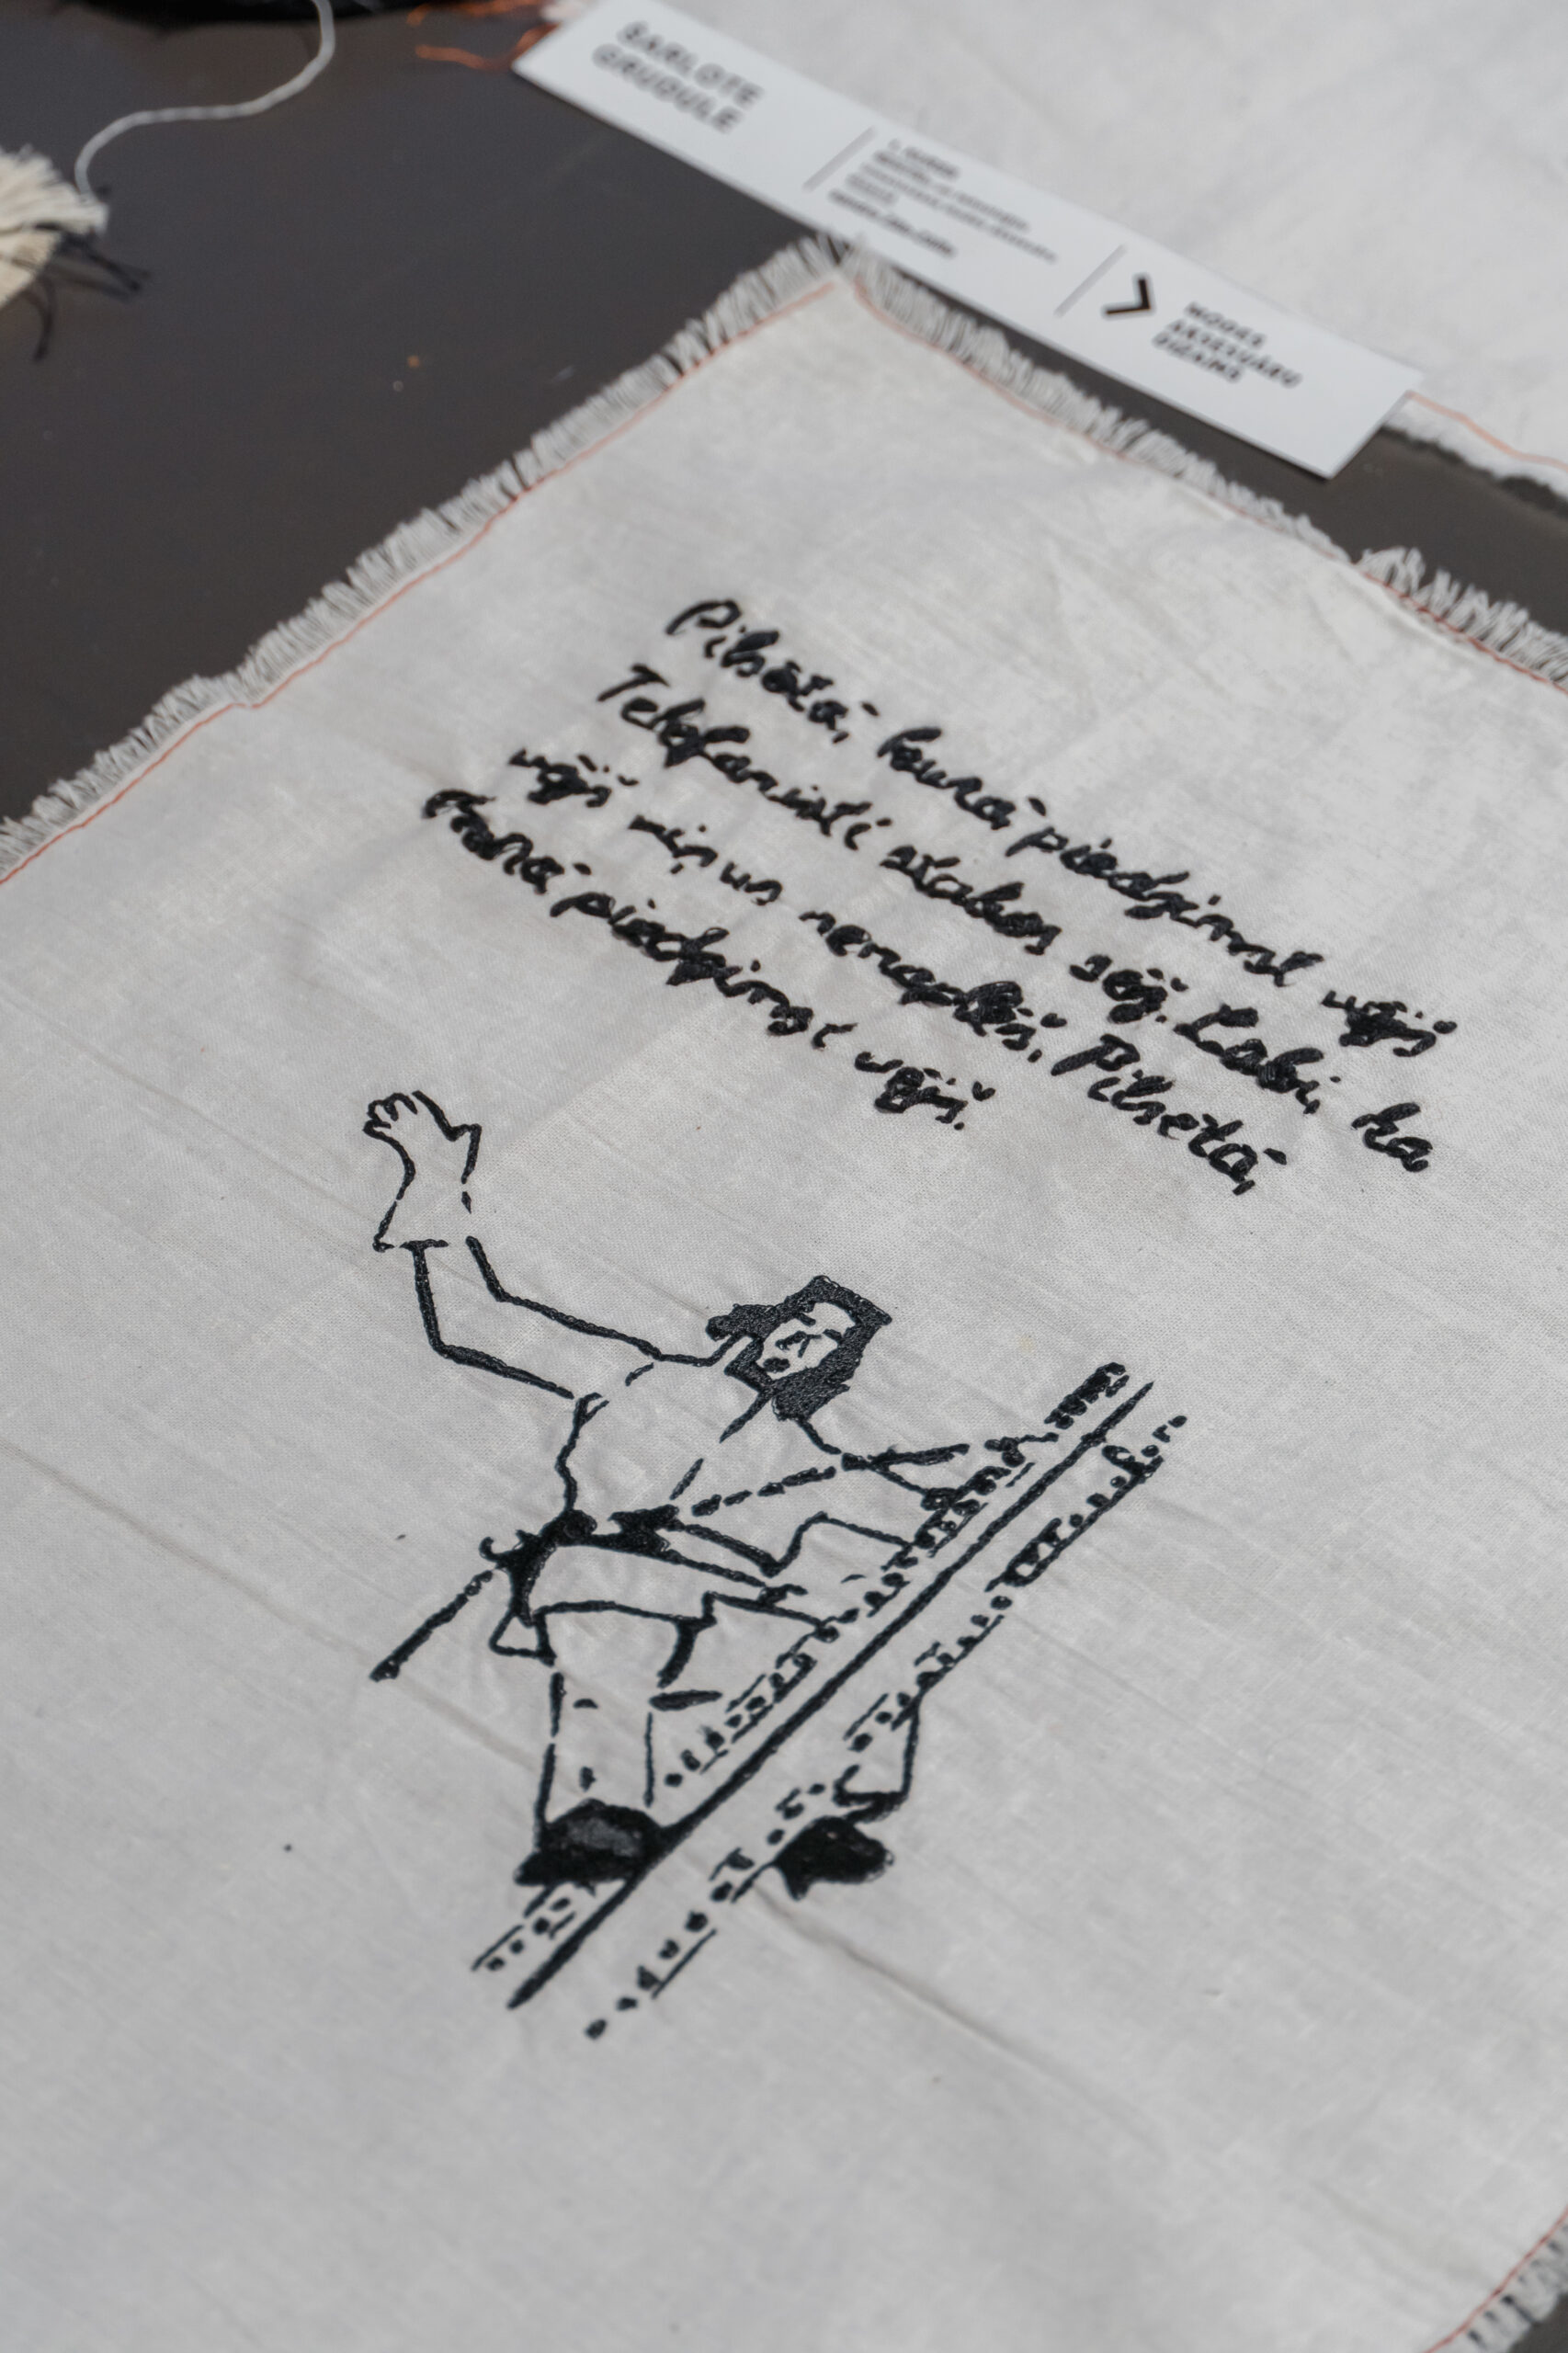 ŠARLOTE
GRUDULE
MODES
AKSESUĀRU
DIZAINS
Pilsētā, kurā piedzimst vējš
Telefonisti stabos sēž. Labi, ka
vējš viņus nenoplēš. Pilsētā,
kurā piedzimst vējš.